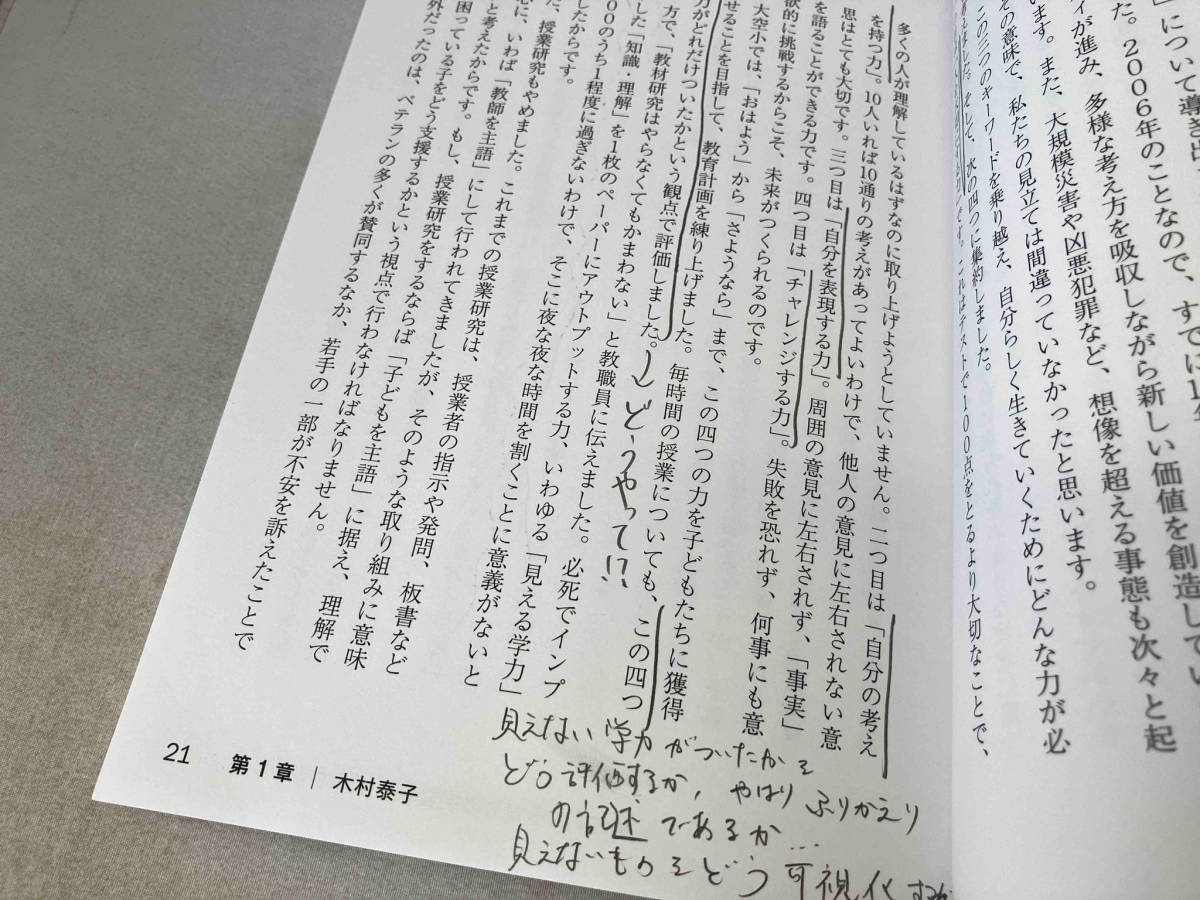 」について導き出
た。2006年のことなので、すでに1
ィが進み、多様な考え方を吸収しながら新しい価値を創造してい
います。また、大規模災害や凶悪犯罪など、想像を超える事態も次々と起
その意味で、私たちの見立ては間違っていなかったと思います。
この三つのキーワードを乗り越え、自分らしく生きていくためにどんな力が必
そして、次の四つに集約しました。
です。これはテストで100点をとるより大切なことで、
多くの人が理解しているはずなのに取り上げようとしていません。二つ目は「自分の考え
を持つ力」。10人いれば10通りの考えがあってよいわけで、他人の意見に左右されない意
思はとても大切です。三つ目は「自分を表現する力」。周囲の意見に左右されず、「事実」
を語ることができる力です。四つ目は「チャレンジする力」。失敗を恐れず、何事にも意
欲的に挑戦するからこそ、未来がつくられるのです。
大空小では、「おはよう」から「さようなら」まで、この四つの力を子どもたちに獲得
せることを目指して、教育計画を練り上げました。毎時間の授業についても、この四つ
力がどれだけついたかという観点で評価しました。
どうやって!?
方で、「教材研究はやらなくてもかまわない」と教職員に伝えました。必死でインプ
した「知識・理解」を1枚のペーパーにアウトプットする力、いわゆる「見える学力」
00のうち1程度に過ぎないわけで、そこに夜な夜な時間を割くことに意義がないと
したからです。
た、授業研究もやめました。これまでの授業研究は、授業者の指示や発問、板書など
心に、いわば「教師を主語」にして行われてきましたが、そのような取り組みに意味
と考えたからです。もし、授業研究をするならば「子どもを主語」に据え、理解で
困っている子をどう支援するかという視点で行わなければなりません。
外だったのは、ベテランの多くが賛同するなか、若手の一部が不安を訴えたことで
見えない学力がついたかを
どう評価するか、やはりふりかえり
の記述であるか…
見えないものをどう可視化する
21 第1章｜木村泰子